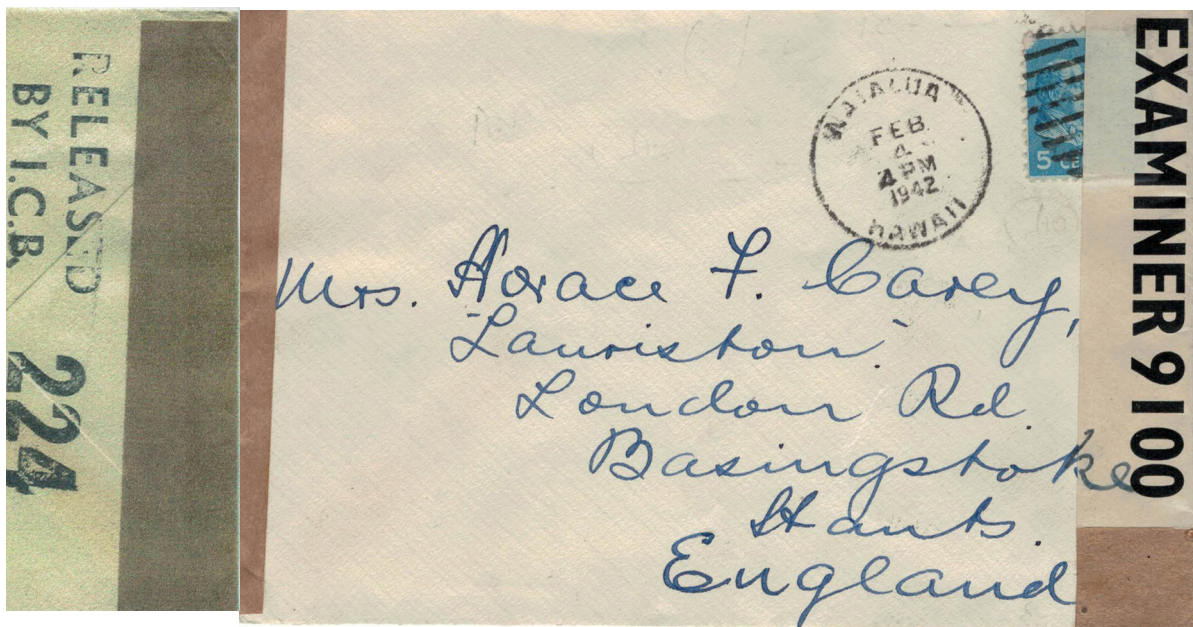 RELEASED
BY I.C.B.
224
WAIALUA
FEB
4
4 PM
1942
HAWAII
5
EXAMINER 9100
Mrs. Horace F. Carey,
"Lauriston"
London Rd.
Basingstoke
Hants.
England.